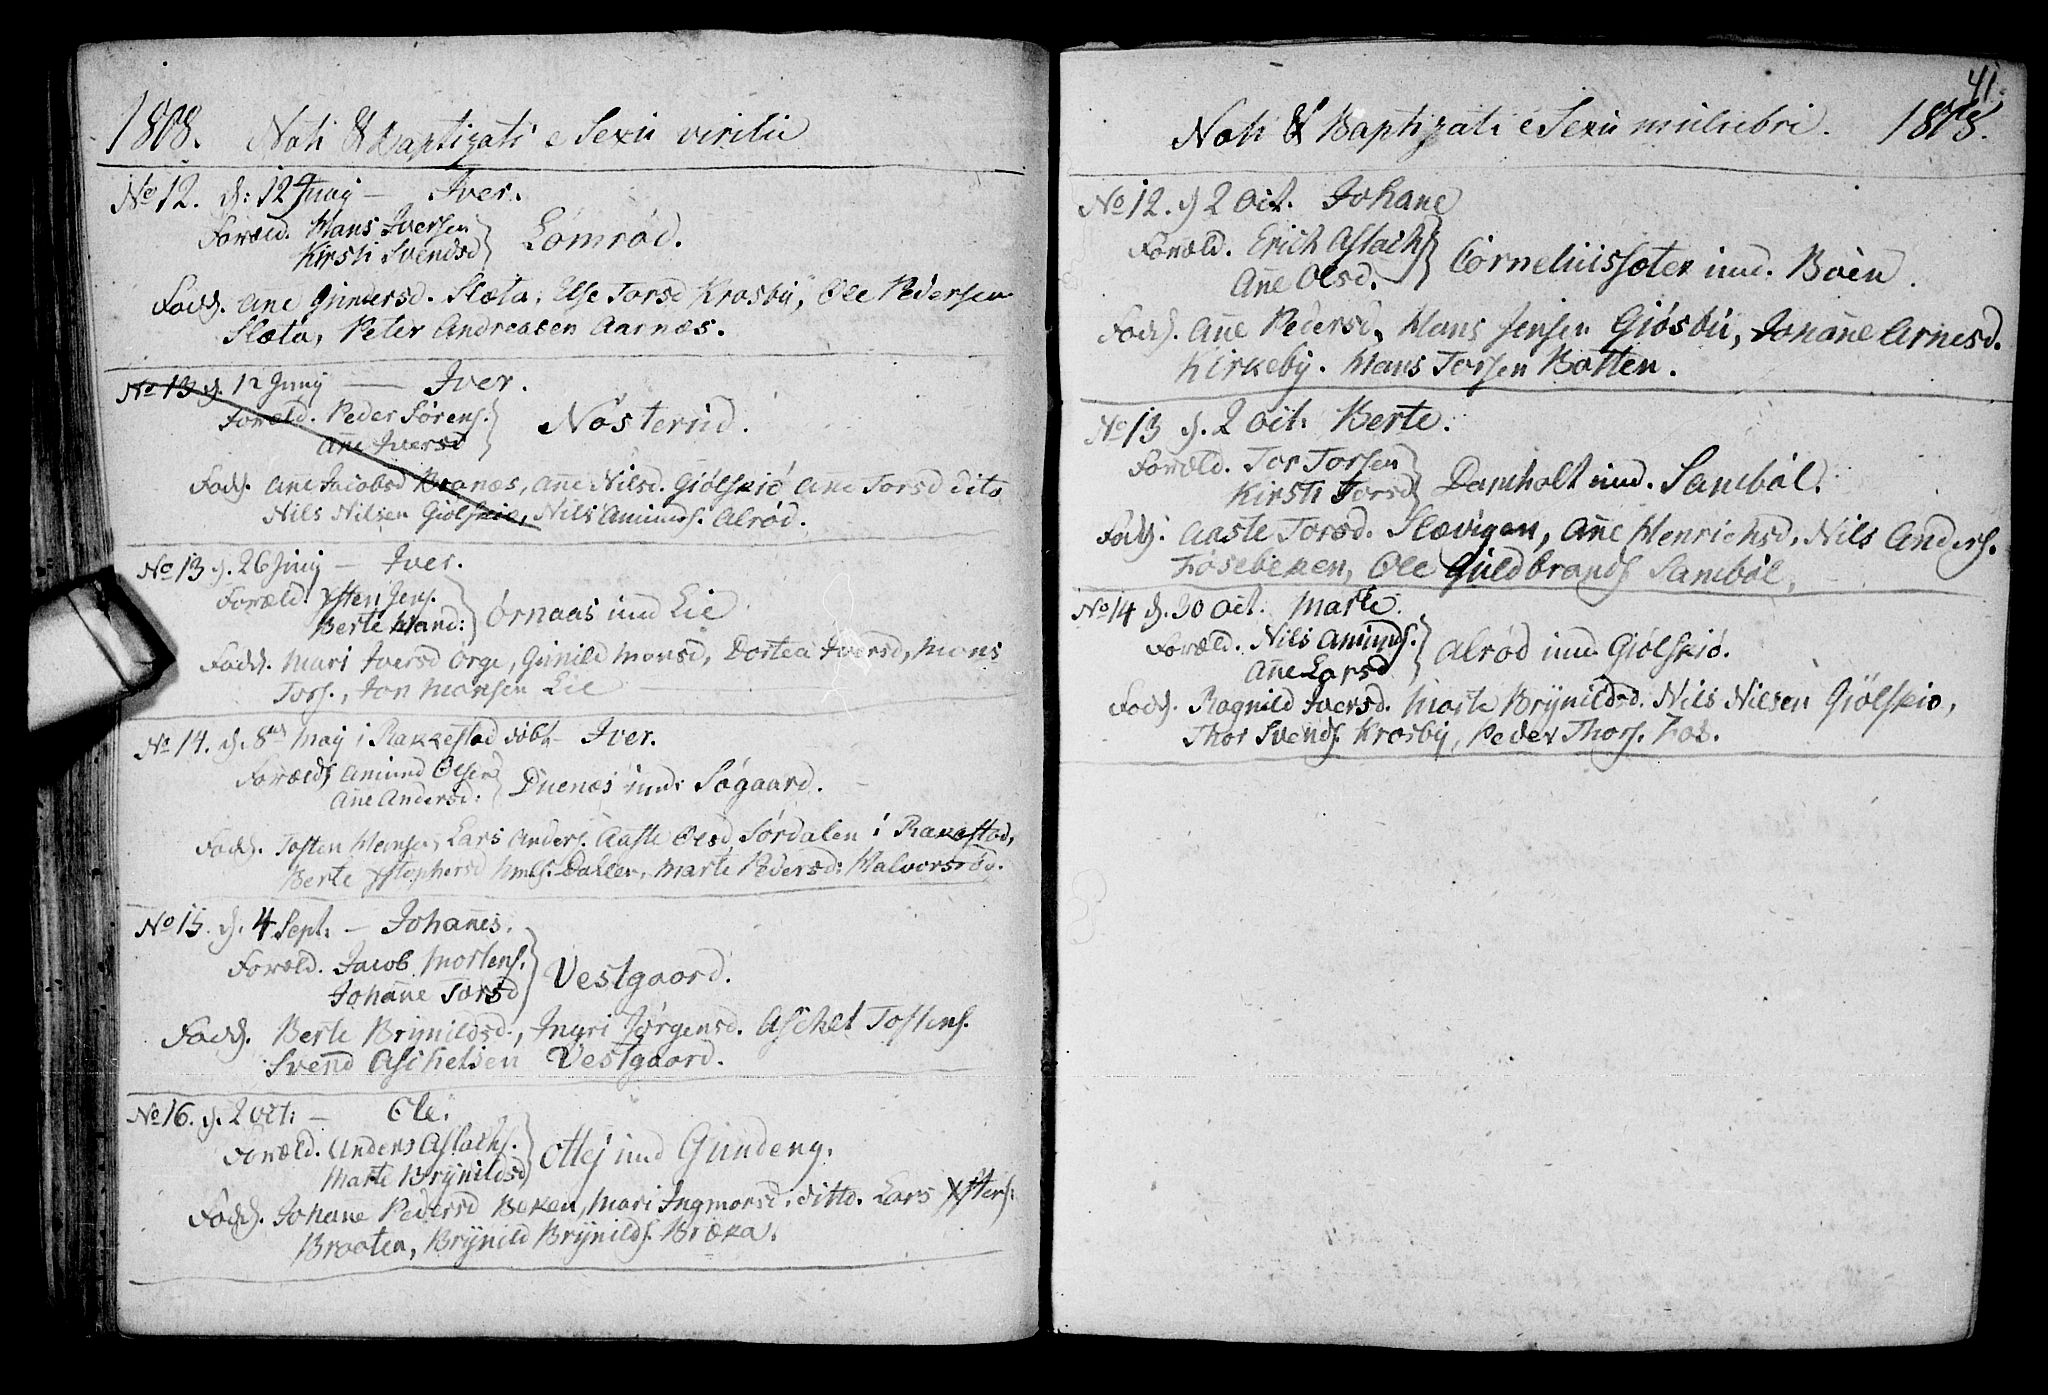 1808. Nati & Baptizati e Sexu virili
No 12. d: 12 Junij — Iver.
Foræld. Hans Iversen
Kirsti Svendsd } Lømrød.
Fadd. Ane Gundersd. Slæta, Else Torsd Krosbÿ, Ole Pedersen
Slæta, Peter Andreasen Aarnæs.
No 13 d. 12 Junij — Iver.
Foræld. Peder Sörens.
Añe Iversd } Nøsterud.
Fadd. Añe Jacobsd Branæs, Añe Nilsd. Giølsriø Ane Torsd dito
Nils Nilsen Giølsriø, Nils Amunds. Alrød.
No 13 d. 26 Junij — Iver.
Foræld. Xsten Jens.
Berte Hand: } Ørnaas und Lie
Fadd. Mari Iversd Orge, Gunild Monsd, Dortea Iversd, Mons
Tors., Jon Monsen Lie
No 14. d. 8de May i Rakkestad döbt — Iver.
Foræld. Amund Olsen
Añe Andersd: } Duenæs und: Søgaard.
Fadd. Tosten Hansen, Lars Anders. Aaste Olsd Sørdalen i Rakestad,
Berte Xstophersd Dalen, Marte Pedersd: Halvorsrød.
No 15. d. 4 Sept. — Johañes.
Foræld. Jacob Mortens.
Johañe Torsd } Vestgaard.
Fadd. Berte Brÿnildsd., Ingri Jørgensd. Aschel Tostens.
Svend Aschelsen Vestgaard.
No 16. d. 2 Oct: — Ole.
Foræld. Anders Aslachs.
Marte Brÿnildsd } Ottej und Gundeng.
Fadd. Johane Pedersd Beken, Mari Ingmorsd. ditto. Lars Xstens.
Braaten, Brÿnild Brÿnilds. Bræka.
41.
Nati & Baptizati e Sexu muliebri. 1808.
No 12. d 2 Oct. Johane
Foræld. Erich Aslachs
Añe Olsd. } Corneliussæter und. Böen.
Fadd. Añe Pedersd, Hans Jensen Giøsbÿ, Johañe Arnesd.
Kirkeby. Hans Torsen Botten.
No 13 d. 2 Oct. Berte.
Foræld. Tor Torsen
Kirsti Torsd } Damholt und. Sambøl.
Fadd. Aaste Torsd. Slævigen, Añe Henrichsd, Nils Anders.
Føsebeken, Ole Guldbrands Sambøl,
No 14 d. 30 Oct. Marte.
Foræld. Nils Amunds.
Añe Larsd } Alrød und Giølsriø.
Fadd. Ragnild Iversd. Marte Brÿnildsd. Nils Nilsen Giølsriø,
Thor Svends. Krosby, Peder Thors. Fos.